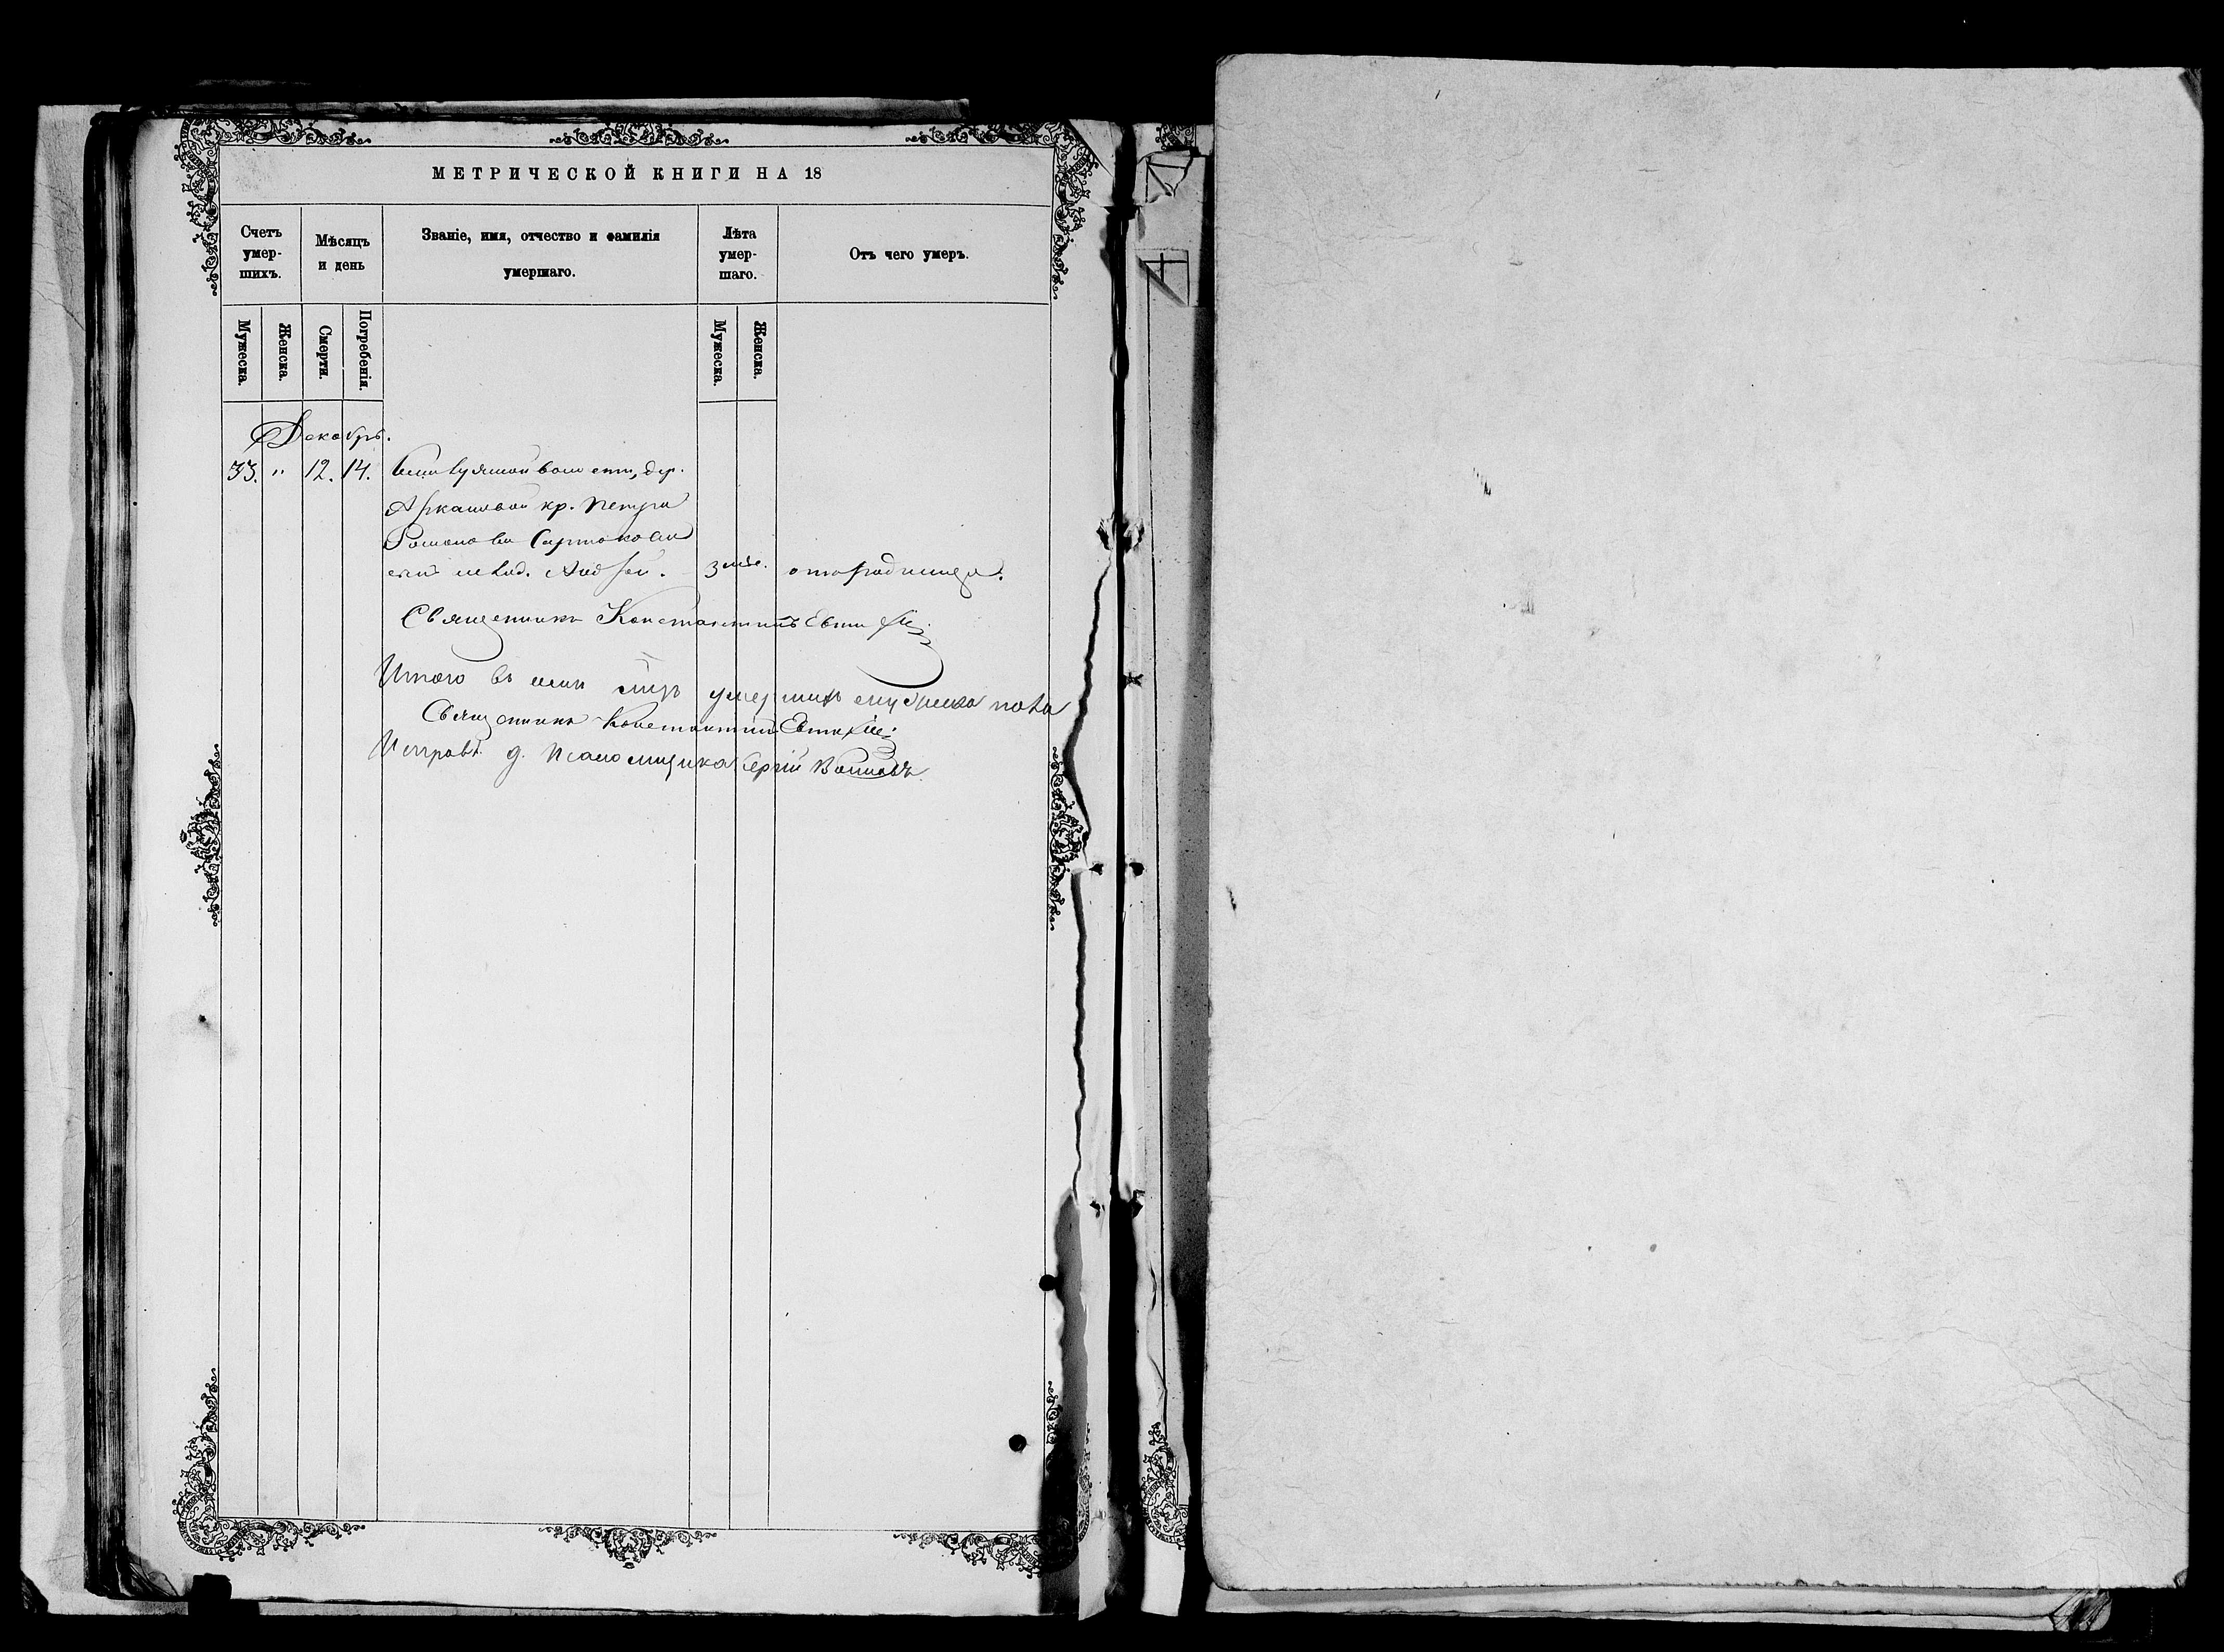 МЕТРИЧЕСКОЙ КНИГИ НА 18
Счетъ умер-шихъ.
Мѣсяцъ и день
Званіе, имя, отчество и фамилія умершаго.
Лѣта умер-шаго.
Отъ чего умеръ.
Мужеска.
Женска.
Смерти.
Погребенія.
Мужеска.
Женска.
Декабрь.
33. " 12. 14. волости, дер.
кр. Петра
Романова
млад. Андрей. 3 мѣс. отъ родимца.
Священникъ Константинъ
Итого въ семъ умершихъ мужеска пола
Священникъ Константинъ
Исправл. д. Псаломщика Сергій